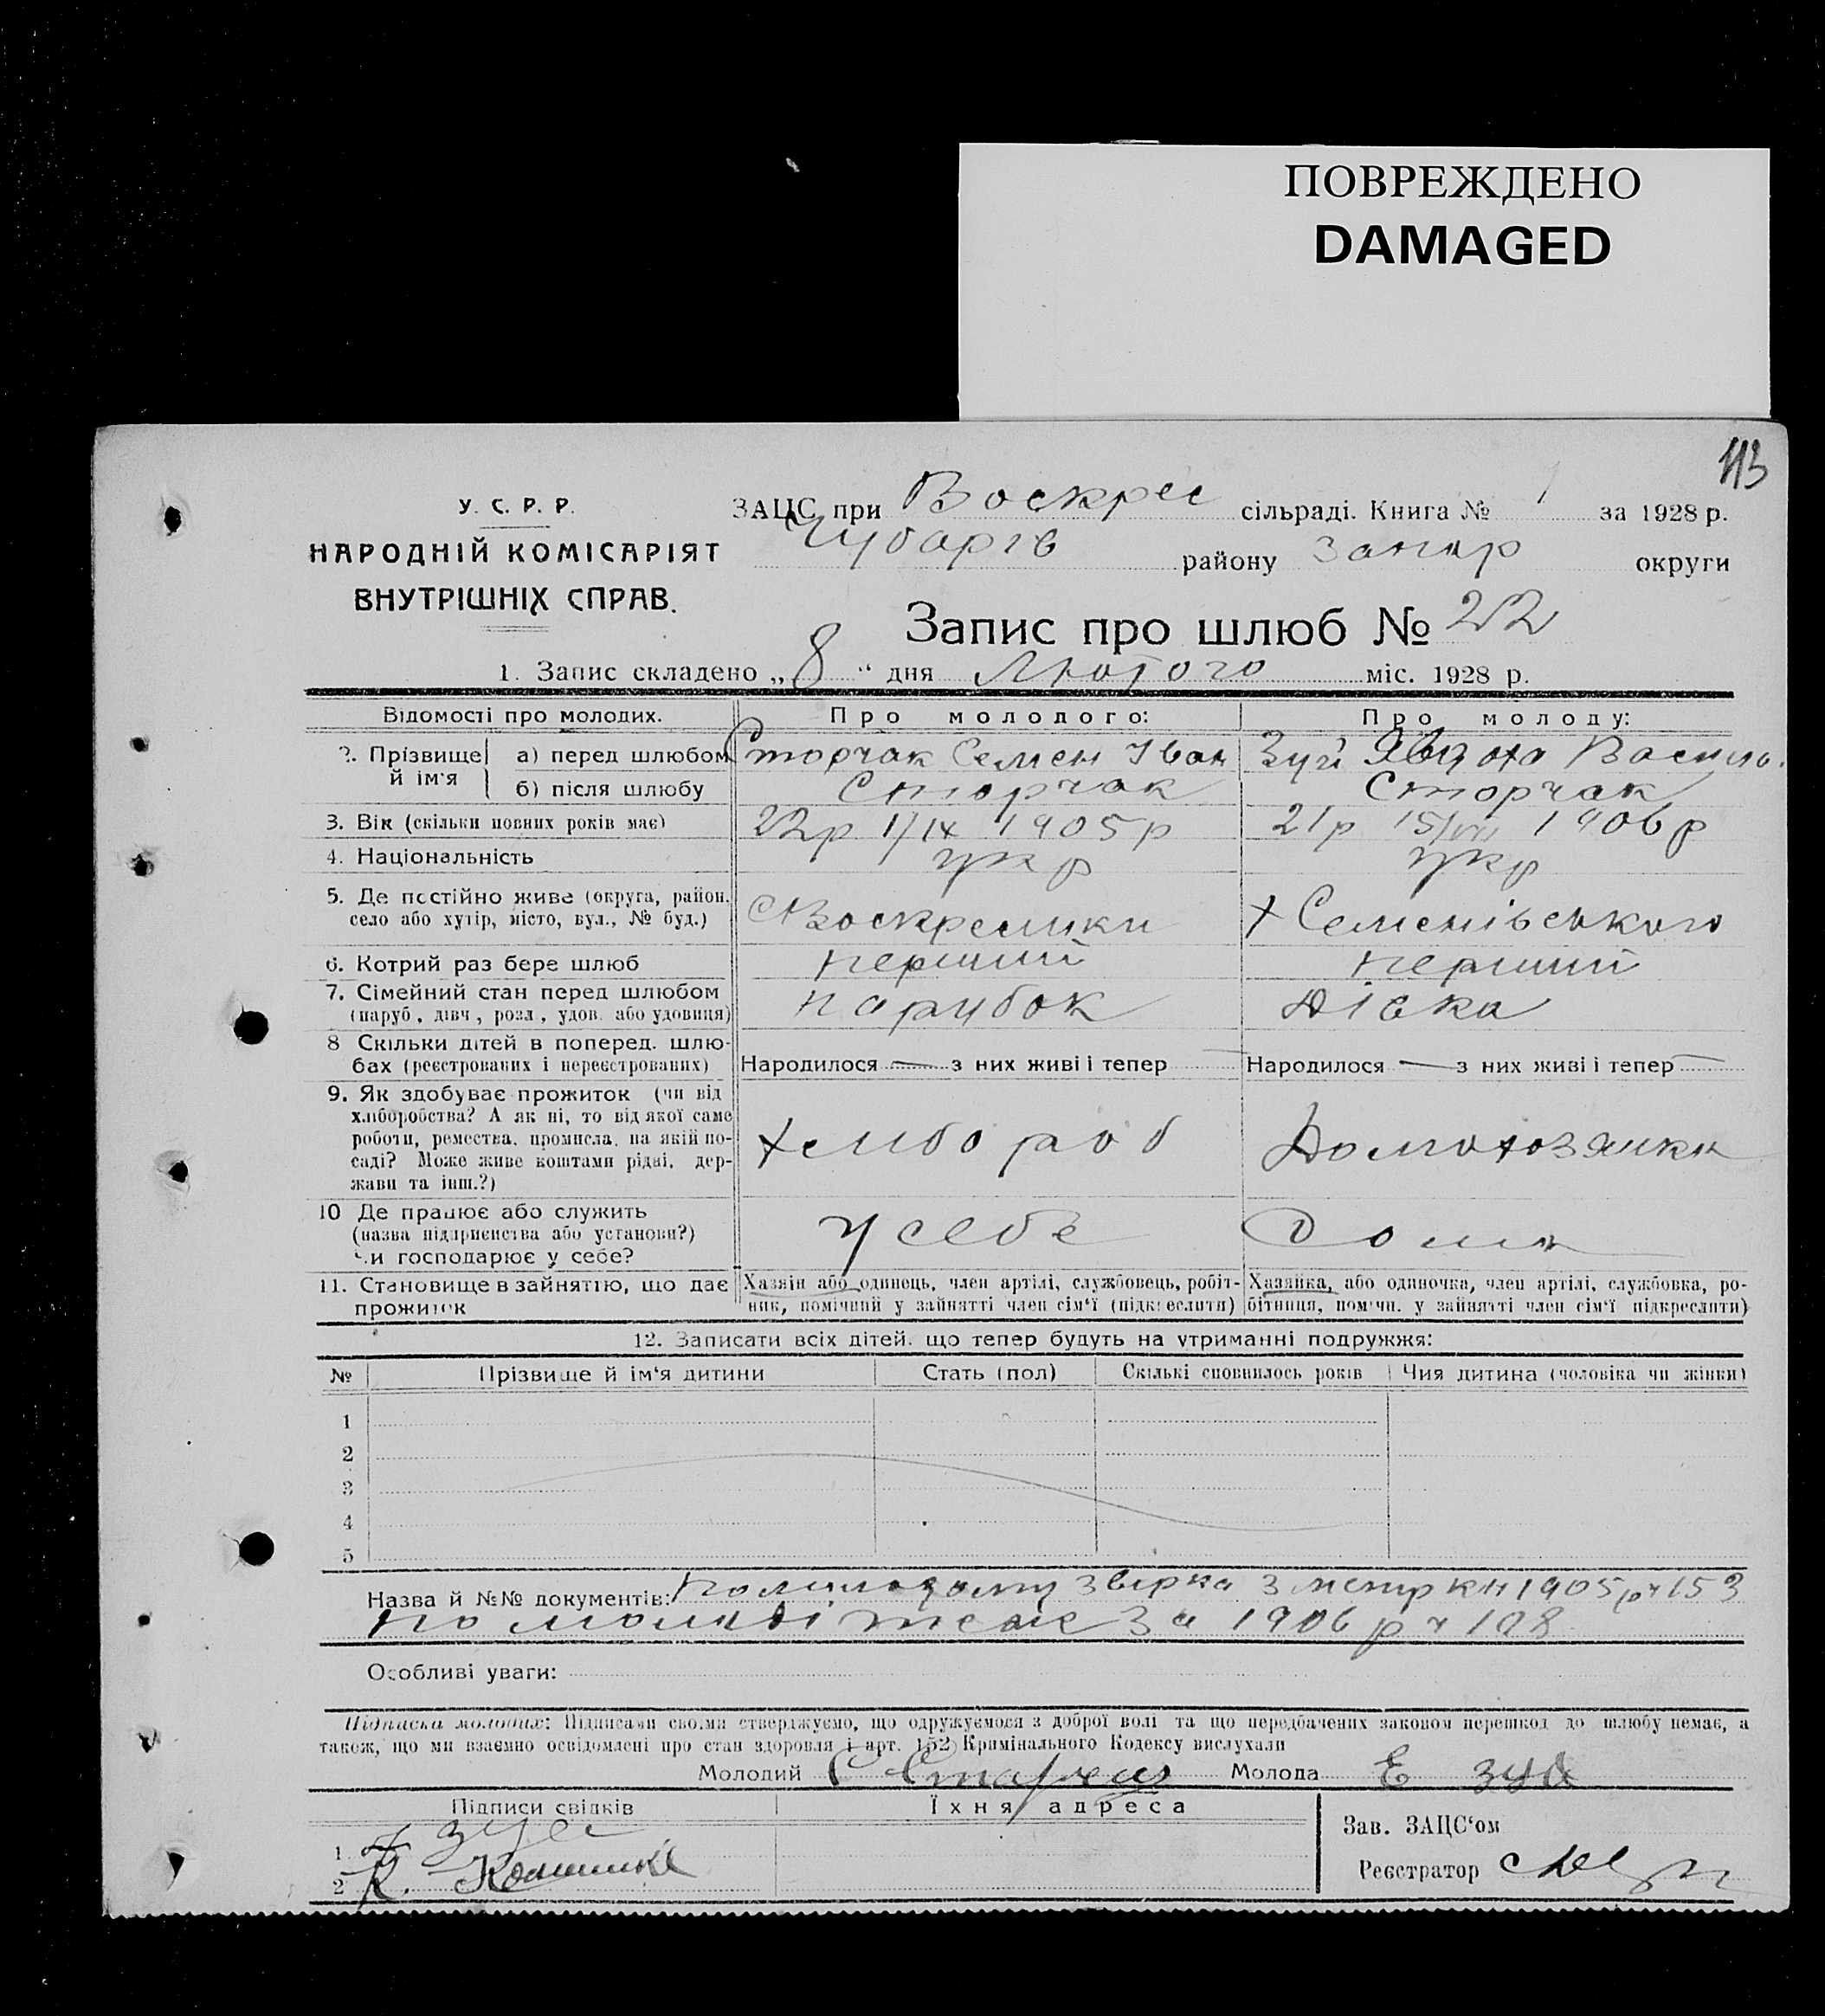 ПОВРЕЖДЕНО
DAMAGED
113
У. С. Р. Р.
НАРОДНІЙ КОМІСАРІЯТ
ВНУТРІШНІХ СПРАВ.
ЗАЦС при Воскрес сільраді. Книга № 1 за 1928 р.
Чубарів району Запор округи
Запис про шлюб № 22
1. Запис складено „8“ дня Лютого міс. 1928 р.
Відомості про молодих. Про молодого: Про молоду:
2. Прізвище й ім'я
а) перед шлюбом Сторчак Семен Іван Зуй Явдоха Василь.
б) після шлюбу Сторчак Сторчак
3. Вік (скільки повних років має) 22р 1/IX 1905р 21р 15/VII 1906р
4. Національність укр укр
5. Де постійно живе (округа, район,
село або хутір, місто, вул., № буд.) С Воскресинки х Семенівського
6. Котрий раз бере шлюб перший перший
7. Сімейний стан перед шлюбом парубок Дівка
(паруб., дівч., розл., удов. або удовиця)
8 Скільки дітей в поперед. шлю-
бах (реєстрованих і нереєстрованих) Народилося — з них живі і тепер Народилося — з них живі і тепер —
9. Як здобуває прожиток (чи від
хліборобства? А як ні, то від якої саме
роботи, ремества, промисла, на якій по- хлибороб Домохозяйка
саді? Може живе коштами рідні, дер-
жави та інш.?)
10 Де працює або служить
(назва підприємства або установи?) у себе Дома
чи господарює у себе?
11. Становище в зайняттю, що дає Хазяїн або одинець, член артілі, службовець, робіт- Хазяйка, або одиночка, член артілі, службовка, ро-
прожиток ник, помічний у зайнятті член сім'ї (підкреслити) бітниця, помічн. у зайнятті член сім'ї підкреслити)
12. Записати всіх дітей, що тепер будуть на утриманні подружжя:
№ Прізвище й ім'я дитини Стать (пол) Скількі сповнилось років Чия дитина (чоловіка чи жінки)
1
2
3
4
5
Назва й №№ документів: По молодому звірка з метр кн 1905р ч 153
по молоді теж за 1906 р ч 108
Особливі уваги:
Підписка молодих: Підписами своїми стверджуємо, що одружуємося з доброї волі та що передбачених законом перешкод до шлюбу немає, а
також, що ми взаємно освідомлені про стан здоровля і арт. 152 Кримінального Кодексу вислухали
Молодий С Сторчак Молода Е зуй
Підписи свідків Їхня адреса
1 зуй
2 К.
Зав. ЗАЦС'ом
Реєстратор